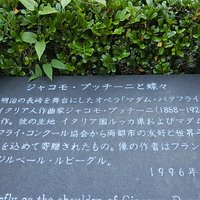 ジャコモ・プッチーニと蝶々
明治の長崎を舞台にしたオペラ「マダム・バタフライ
イタリア人作曲家ジャコモ・プッチーニ(1858-192
作。彼の生地 イタリア国ルッカ県およびマダム
フライ・コンクール協会から両都市の友好と世界
を込めて寄贈されたもの。像の作者はフラン
ジルベール・ルビーグル。
1996年
on the shoulder of